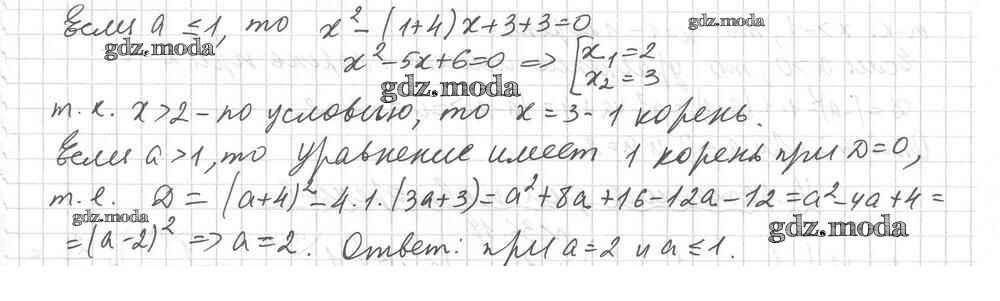 Если a ≤ 1, то x² - (1+4)x+3+3=0
gdz.moda
gdz.moda
x²-5x+6=0 => [x₁ = 2
x₂ = 3
gdz.moda
т.к. x>2 - по условию, то x = 3 - 1 корень.
Если a>1, то уравнение имеет 1 корень при D=0,
т.е. D = (a+4)²-4·1·(3a+3)=a²+8a+16-12a-12=a²-4a+4=
gdz.moda
=(a-2)² => a=2. Ответ: при a=2 и a≤1.
gdz.moda